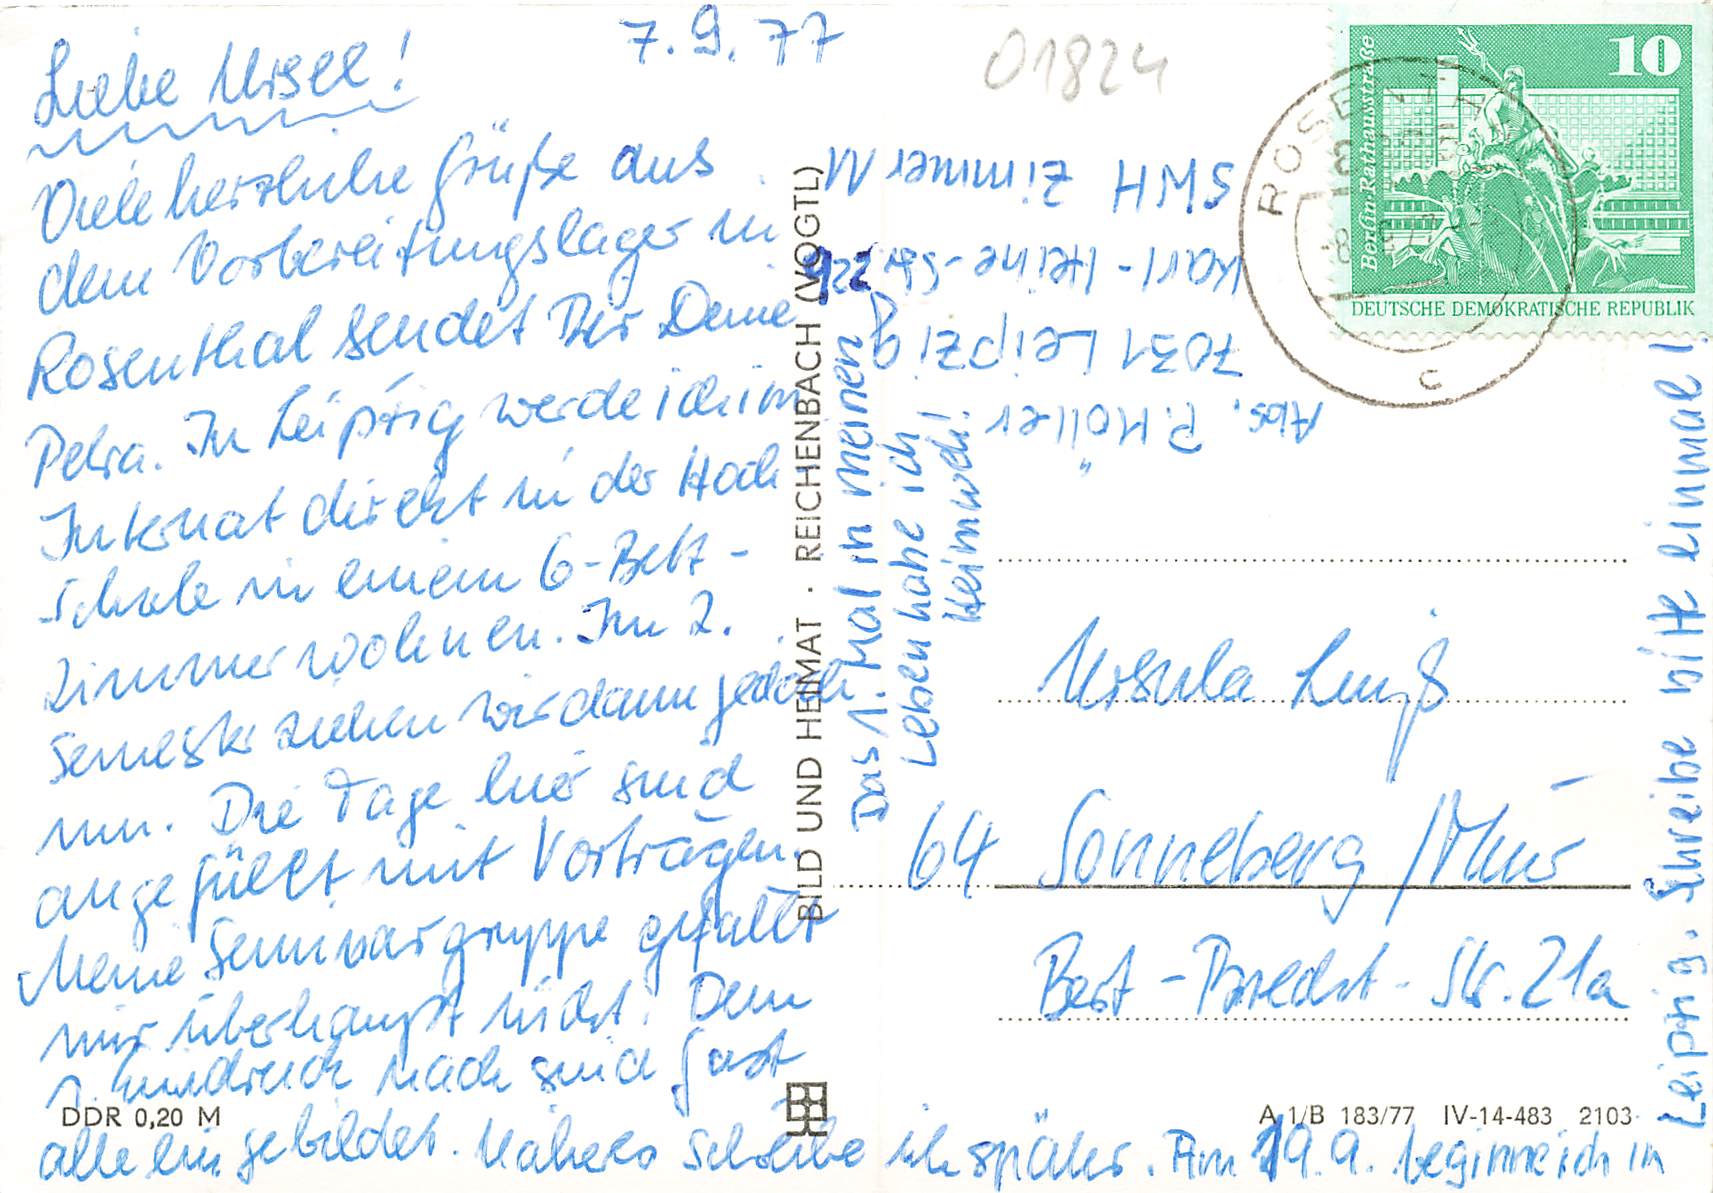 7.9.77
01824
Liebe Ursel!
Viele herzliche Grüße aus
dem Vorbereitungslager in
Rosenthal sendet Dir Deine
Petra. In Leipzig werde ich im
Internat direkt in der Hoch
schule in einem 6-Bett-
zimmer wohnen. Im 2.
Semester ziehen wir dann jedoch
um. Die Tage hier sind
angefüllt mit Vorträgen.
Meine Seminargruppe gefällt
mir überhaupt nicht. Dem
1. Eindruck nach sind fast
alle eingebildet. Näheres schreibe ich später. Am 19.9. beginne ich in
Leipzig. Schreibe bitte einmal!
Das 1. Mal in meinen
Leben habe ich
Heimweh!
Abs. P. Möller
7031 Leipzig
Karl-Heine-Str. 22b
SWH Zimmer M
BILD UND HEIMAT · REICHENBACH (VOGTL)
10
Berlin-Rathausstraße
DEUTSCHE DEMOKRATISCHE REPUBLIK
Ursula
64 Sonneberg
Bert-Brecht-Str. 21a
DDR 0,20 M
A 1/B 183/77 IV-14-483 2103